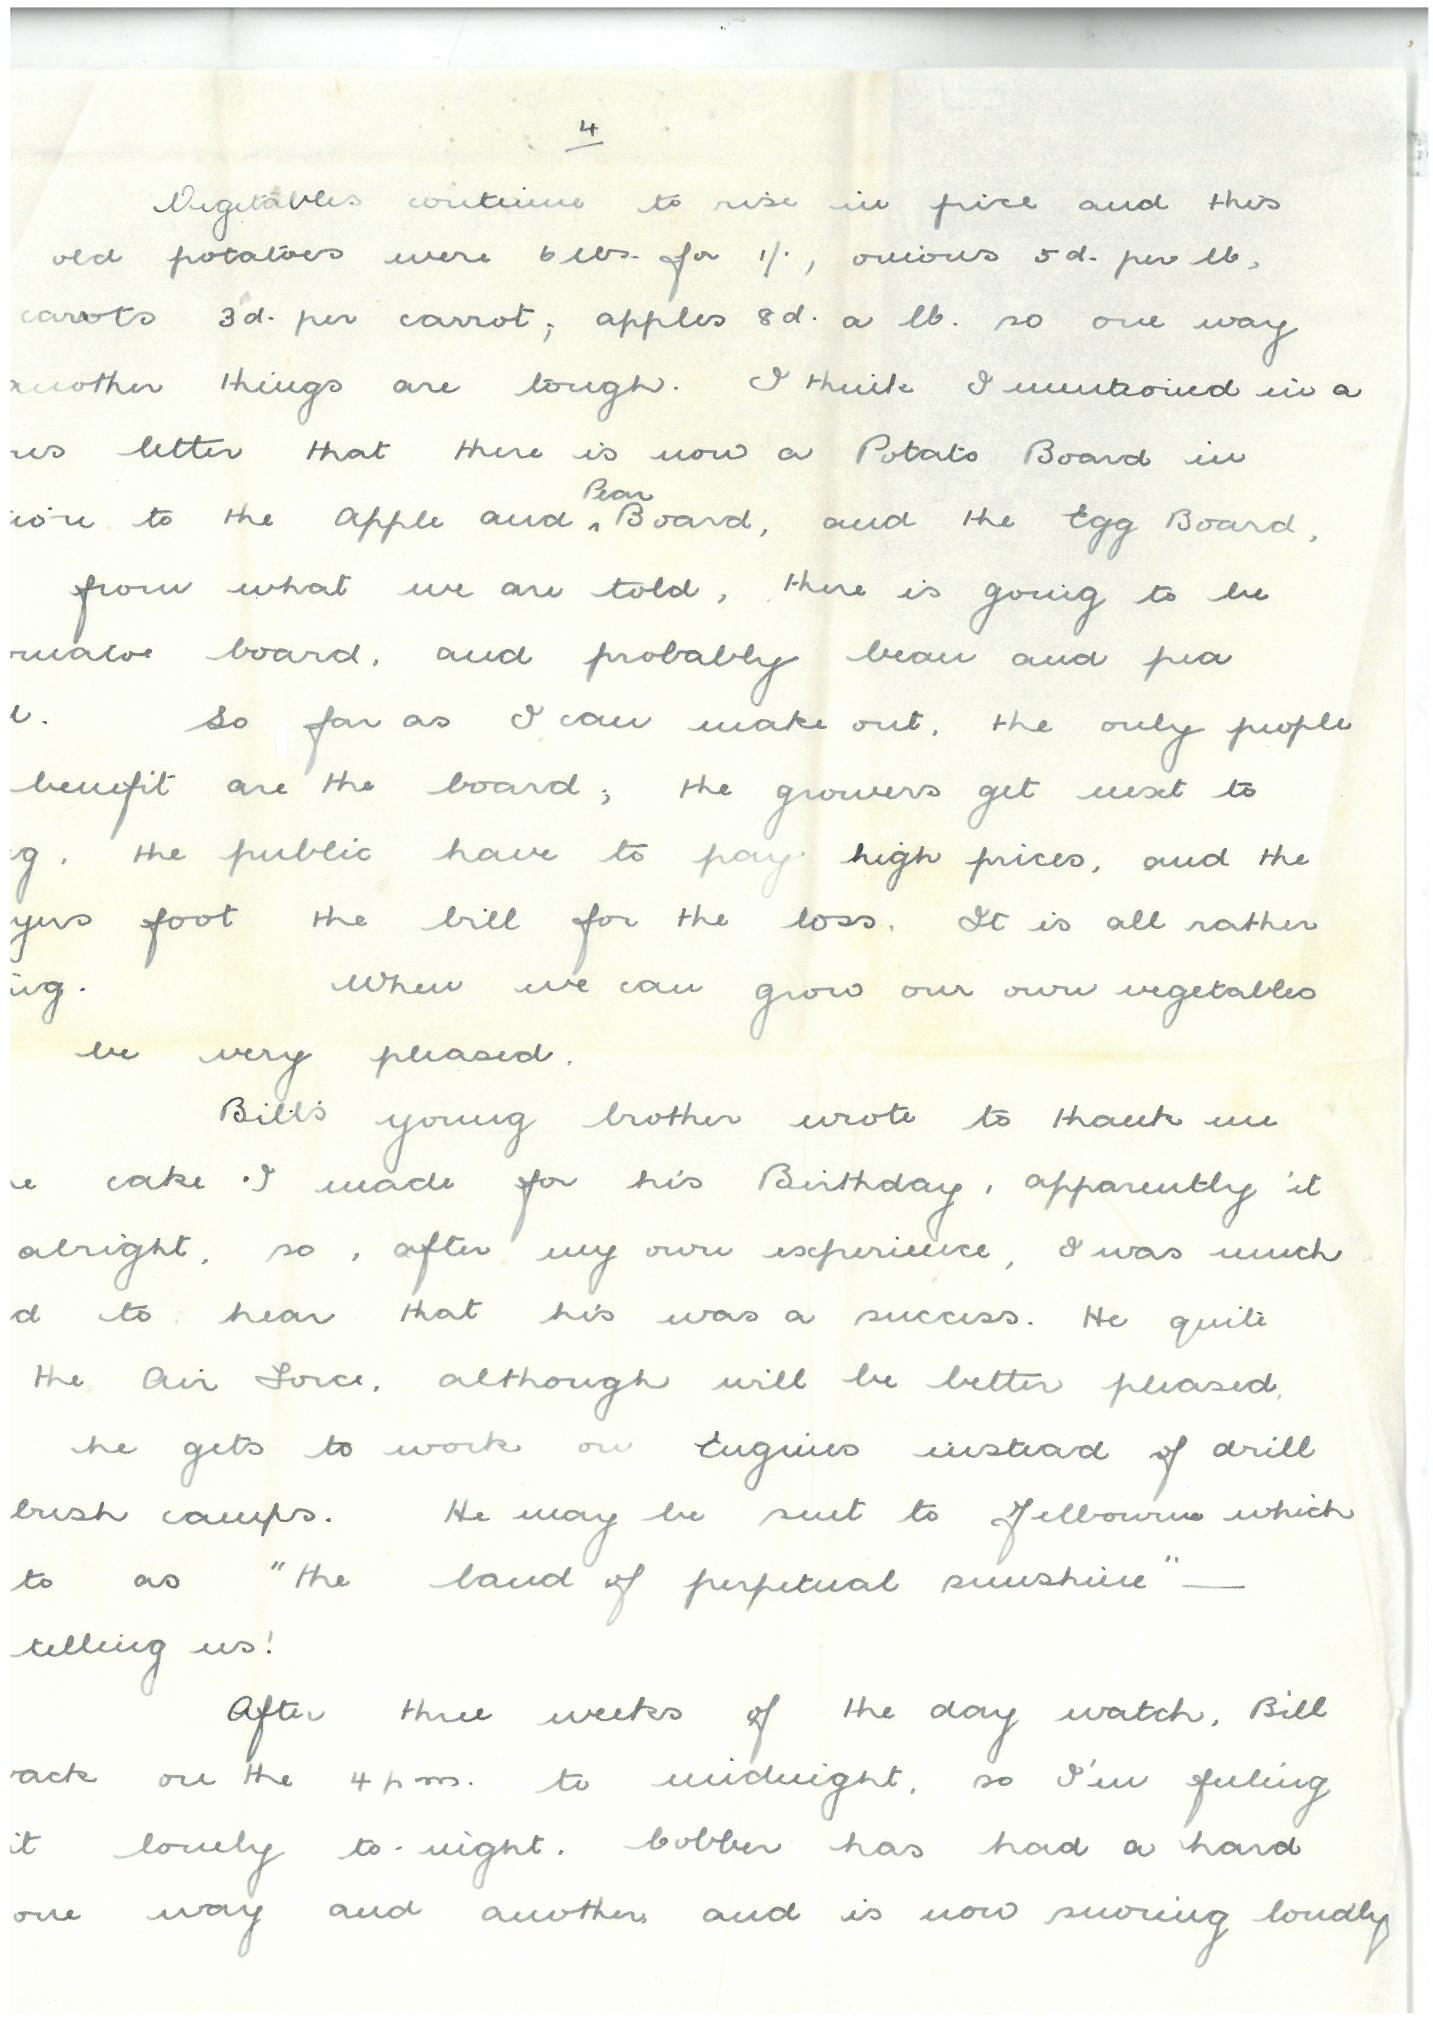 4
Vegetables continue to rise in price and this
old potatoes were 6 lbs. for 1/-, onions 5d. per lb,
carrots 3d. per carrot, apples 8d. a lb. so one way
another things are tough. I think I mentioned in a
letter that there is now a Potato Board in
to the Apple and ^ Pear Board, and the Egg Board,
from what we are told, there is going to be
board, and probably bean and pea
So far as I can make out, the only people
benefit are the board, the growers get next to
the public have to pay high prices, and the
foot the bill for the loss. It is all rather
When we can grow our own vegetables
be very pleased.
Bill's young brother wrote to thank me
cake I made for his Birthday, apparently it
alright, so, after my own experience, I was much
to hear that his was a success. He quite
the Air Force, although will be better pleased
he gets to work on Engines instead of drill
bush camps. He may be sent to which
to as "the land of perpetual sunshine" —
telling us!
After three weeks of the day watch, Bill
on the 4 p.m. to midnight, so I'm feeling
lonely to-night. Cobber has had a hard
one way and another and is now snoring loudly